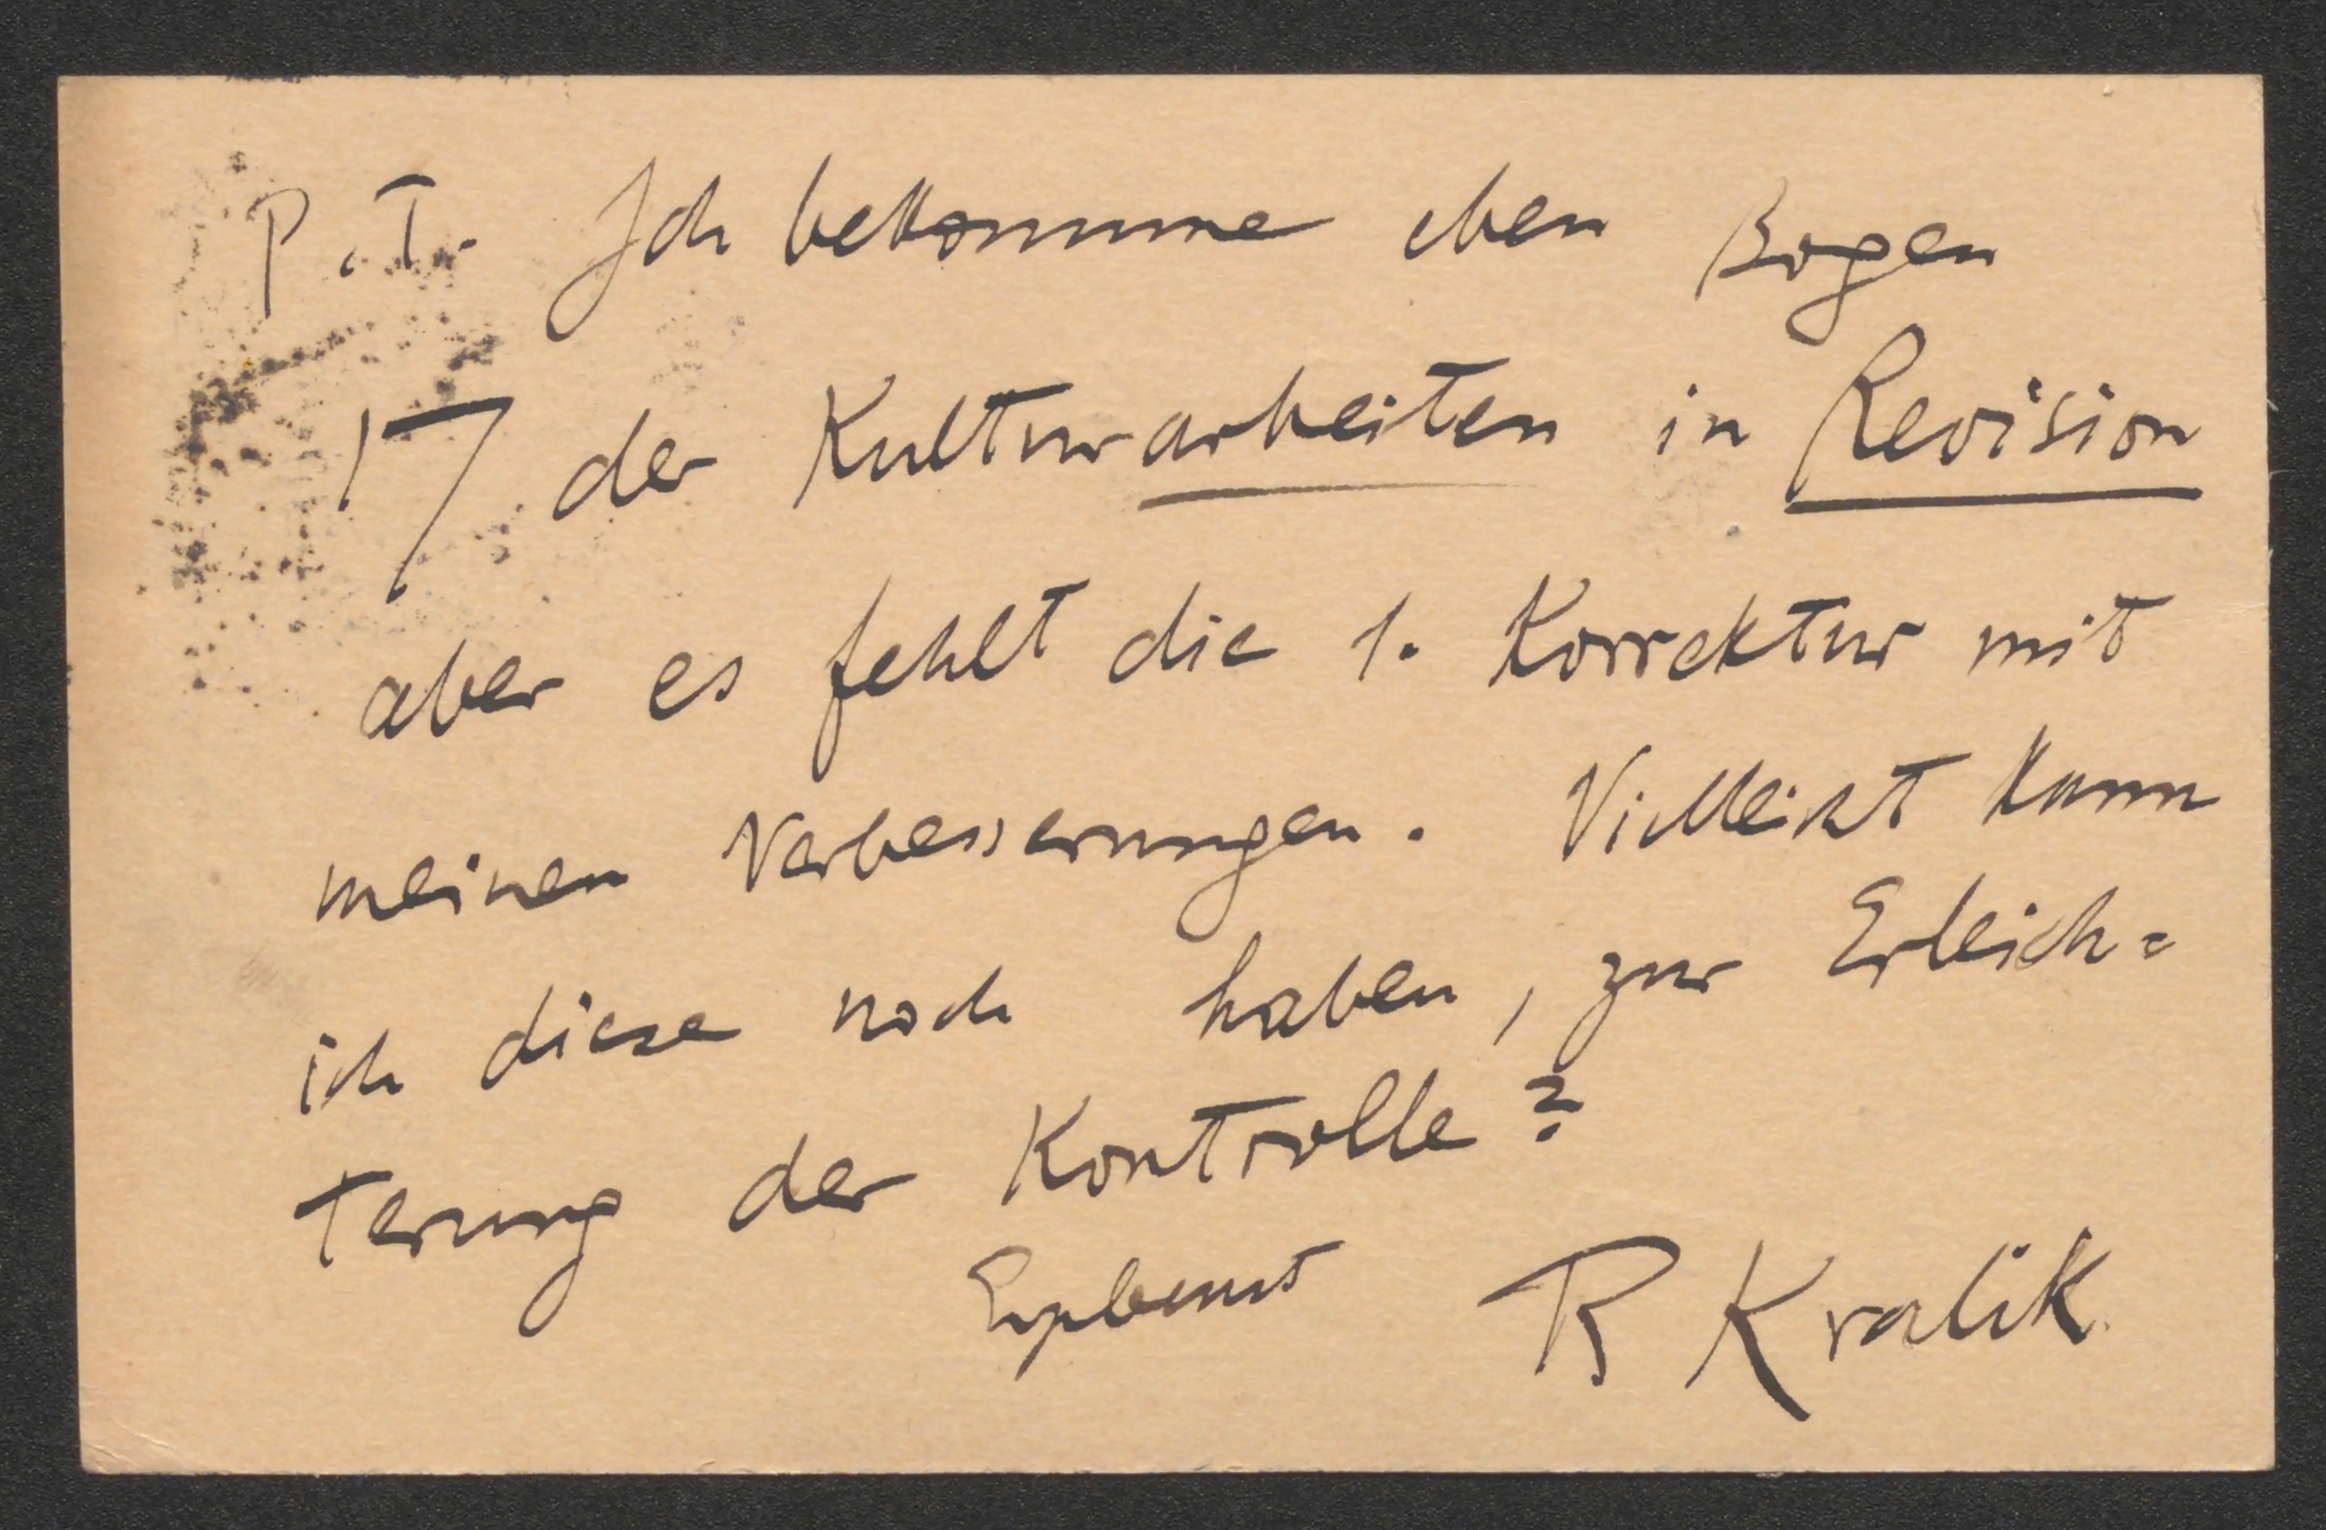 P.T. Ich bekomme eben Bogen
17 der Kulturarbeiten in Revision
aber es fehlt die 1. Korrektur mit
meinen Verbesserungen. Vielleicht kann
ich diese noch haben, zur Erleich=
terung der Kontrolle?
Ergebenst R Kralik